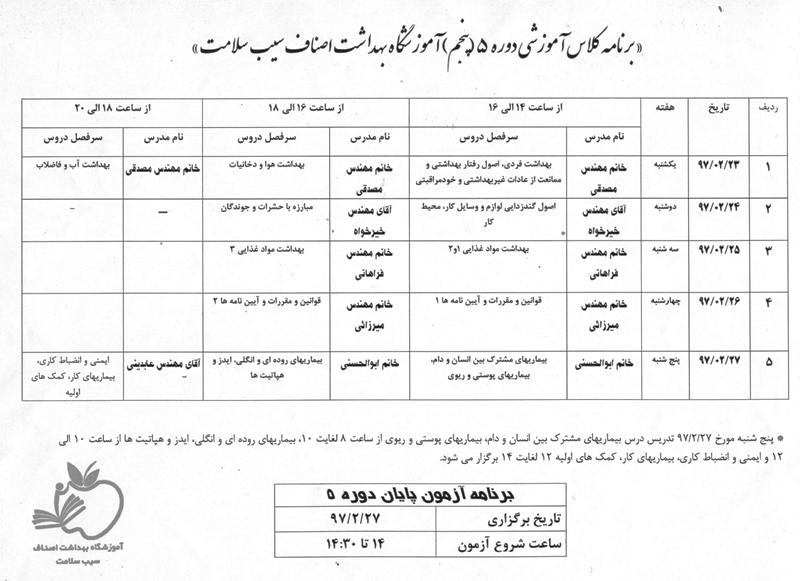 «برنامه کلاس آموزشی دوره ۵ (پنجم) آموزشگاه بهداشت اصناف سیب سلامت»
ردیف تاریخ هفته از ساعت ۱۴ الی ۱۶ از ساعت ۱۶ الی ۱۸ از ساعت ۱۸ الی ۲۰
نام مدرس سرفصل دروس نام مدرس سرفصل دروس نام مدرس سرفصل دروس
۱ ۹۷/۰۲/۲۳ یکشنبه خانم مهندس بهداشت فردی، اصول رفتار بهداشتی و خانم مهندس بهداشت هوا و دخانیات خانم مهندس مصدقی بهداشت آب و فاضلاب
مصدقی ممانعت از عادات غیربهداشتی و خودمراقبتی مصدقی
۲ ۹۷/۰۲/۲۴ دوشنبه آقای مهندس اصول گندزدایی لوازم و وسایل کار، محیط آقای مهندس مبارزه با حشرات و جوندگان – –
خیرخواه کار خیرخواه
۳ ۹۷/۰۲/۲۵ سه شنبه خانم مهندس بهداشت مواد غذایی ۱و۲ خانم مهندس بهداشت مواد غذایی ۳
فراهانی فراهانی
۴ ۹۷/۰۲/۲۶ چهارشنبه خانم مهندس قوانین و مقررات و آیین نامه ها ۱ خانم مهندس قوانین و مقررات و آیین نامه ها ۲
میرزائی میرزائی
۵ ۹۷/۰۲/۲۷ پنج شنبه خانم ابوالحسنی بیماریهای مشترک بین انسان و دام، خانم ابوالحسنی بیماریهای روده ای و انگلی، ایدز و آقای مهندس عابدینی ایمنی و انضباط کاری،
بیماریهای پوستی و ریوی هپاتیت ها – بیماریهای کار، کمک های
اولیه
* پنج شنبه مورخ ۹۷/۲/۲۷ تدریس درس بیماریهای مشترک بین انسان و دام، بیماریهای پوستی و ریوی از ساعت ۸ لغایت ۱۰، بیماریهای روده ای و انگلی، ایدز و هپاتیت ها از ساعت ۱۰ الی
۱۲ و ایمنی و انضباط کاری، بیماریهای کار، کمک های اولیه ۱۲ لغایت ۱۴ برگزار می شود.
برنامه آزمون پایان دوره ۵
تاریخ برگزاری ۹۷/۲/۲۷
ساعت شروع آزمون ۱۴ تا ۱۴:۳۰
آموزشگاه بهداشت اصناف
سیب سلامت